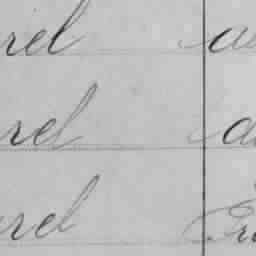 rel a
rel a
rel